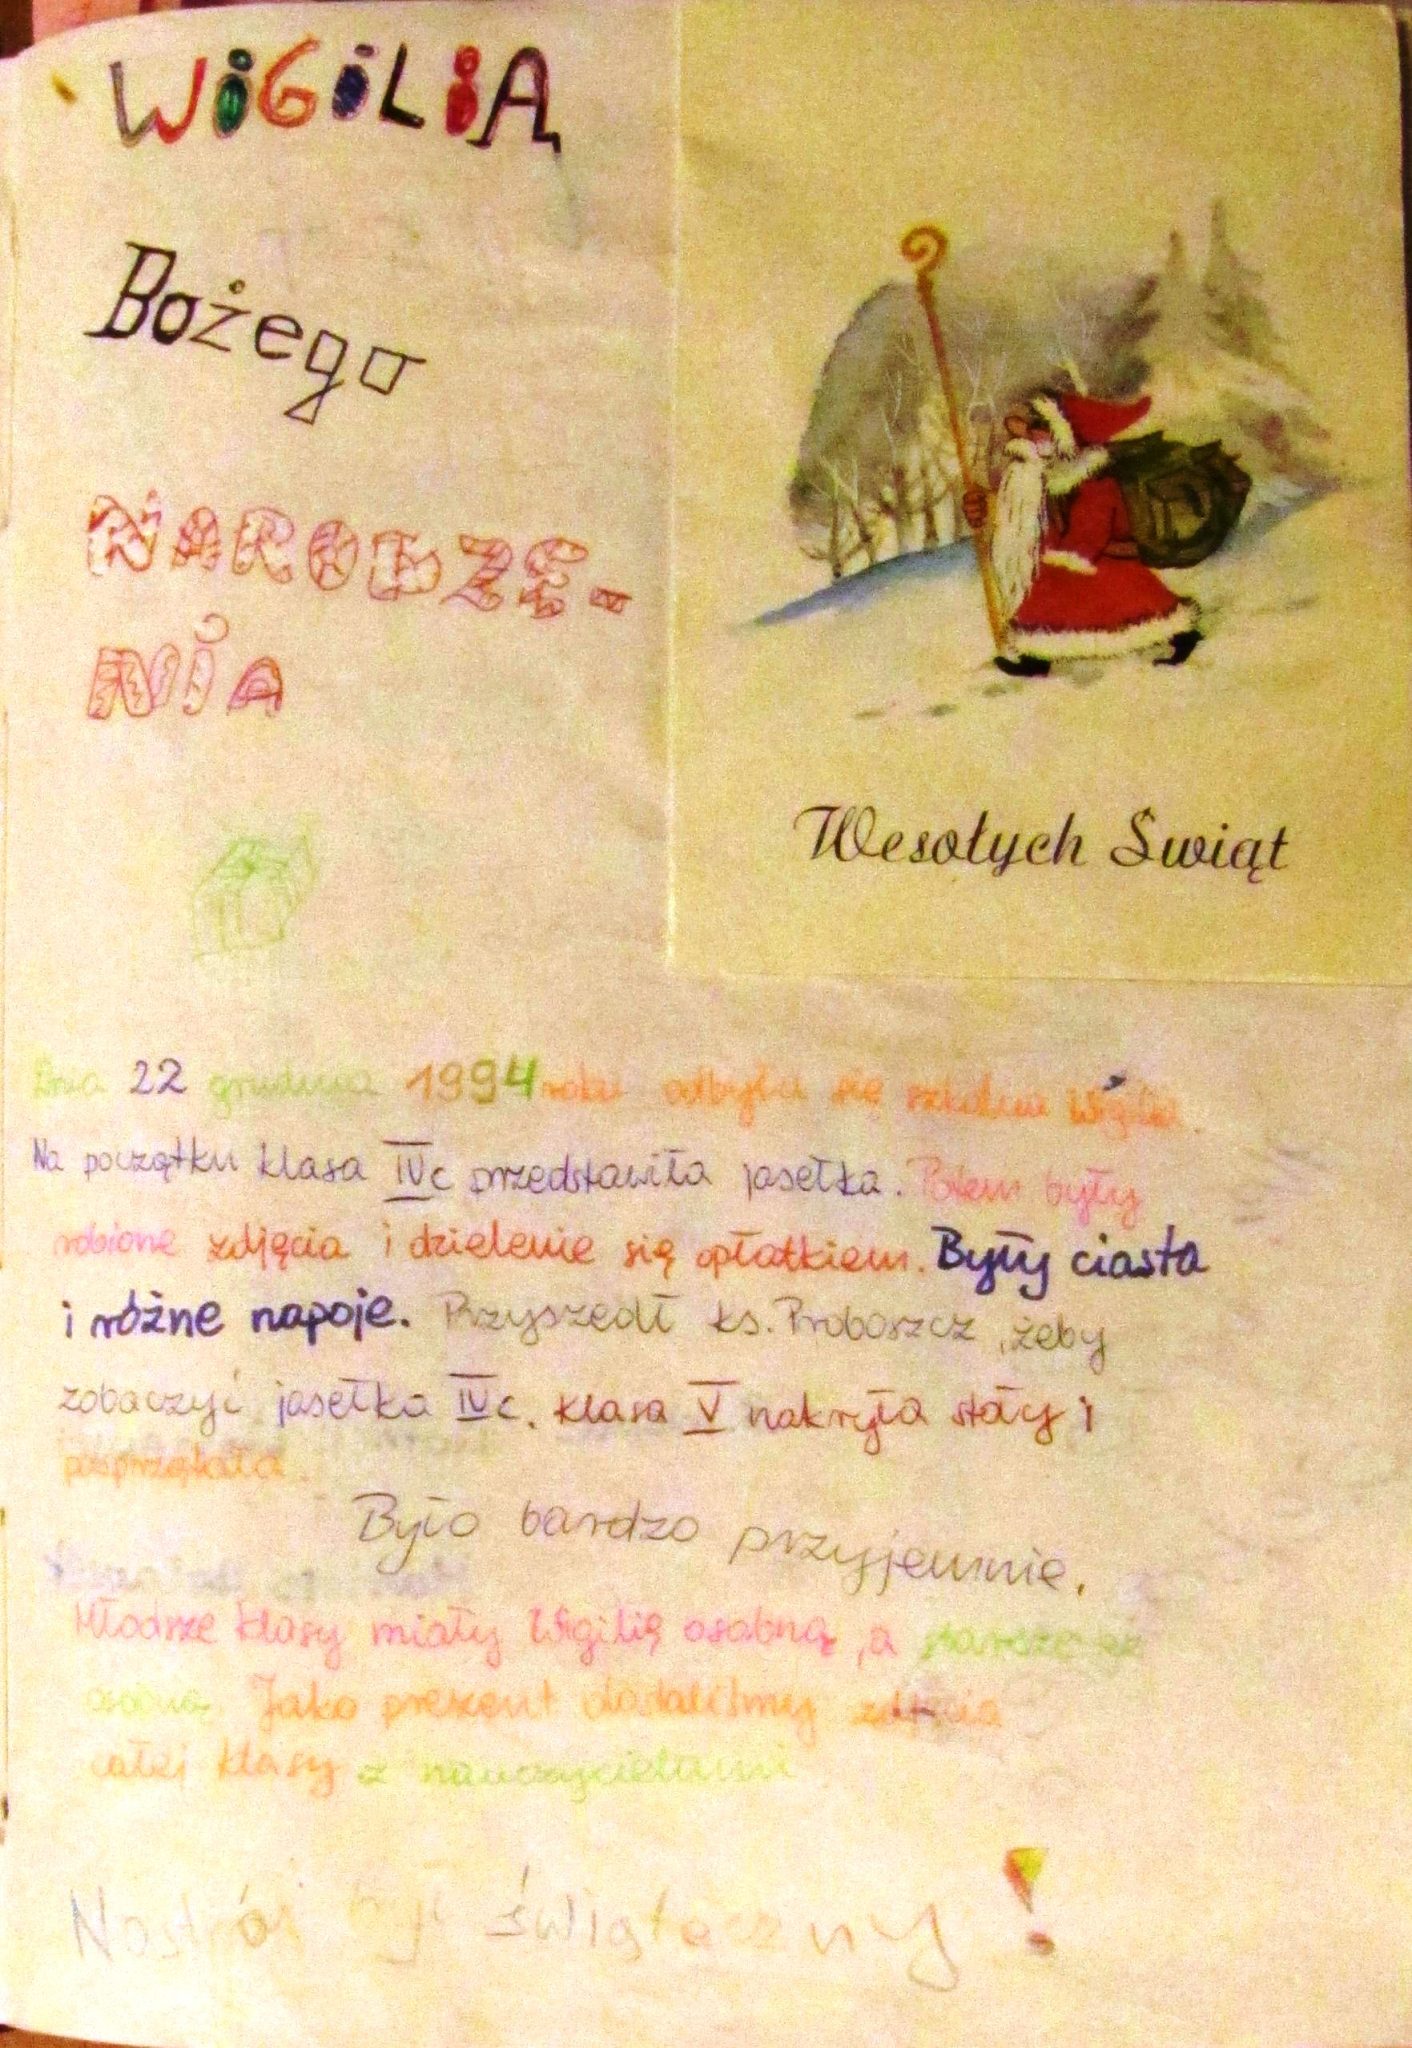 WiGiLiĄ
Bożego
NARODZE-
NiA
Wesołych Świąt
Dnia 22 grudnia 1994 roku odbyła się szkolna Wigilia.
Na początku klasa IVc przedstawiła jasełka. Potem były
robione zdjęcia i dzielenie się opłatkiem. Były ciasta
i różne napoje. Przyszedł ks. Proboszcz, żeby
zobaczyć jasełka IVc. Klasa V nakryła stoły i
posprzątała.
Było bardzo przyjemnie.
Młodsze klasy miały Wigilię osobną, a starsze
osobną. Jako prezent dostaliśmy zdjęcia
całej klasy z nauczycielami.
Nastrój był świąteczny!